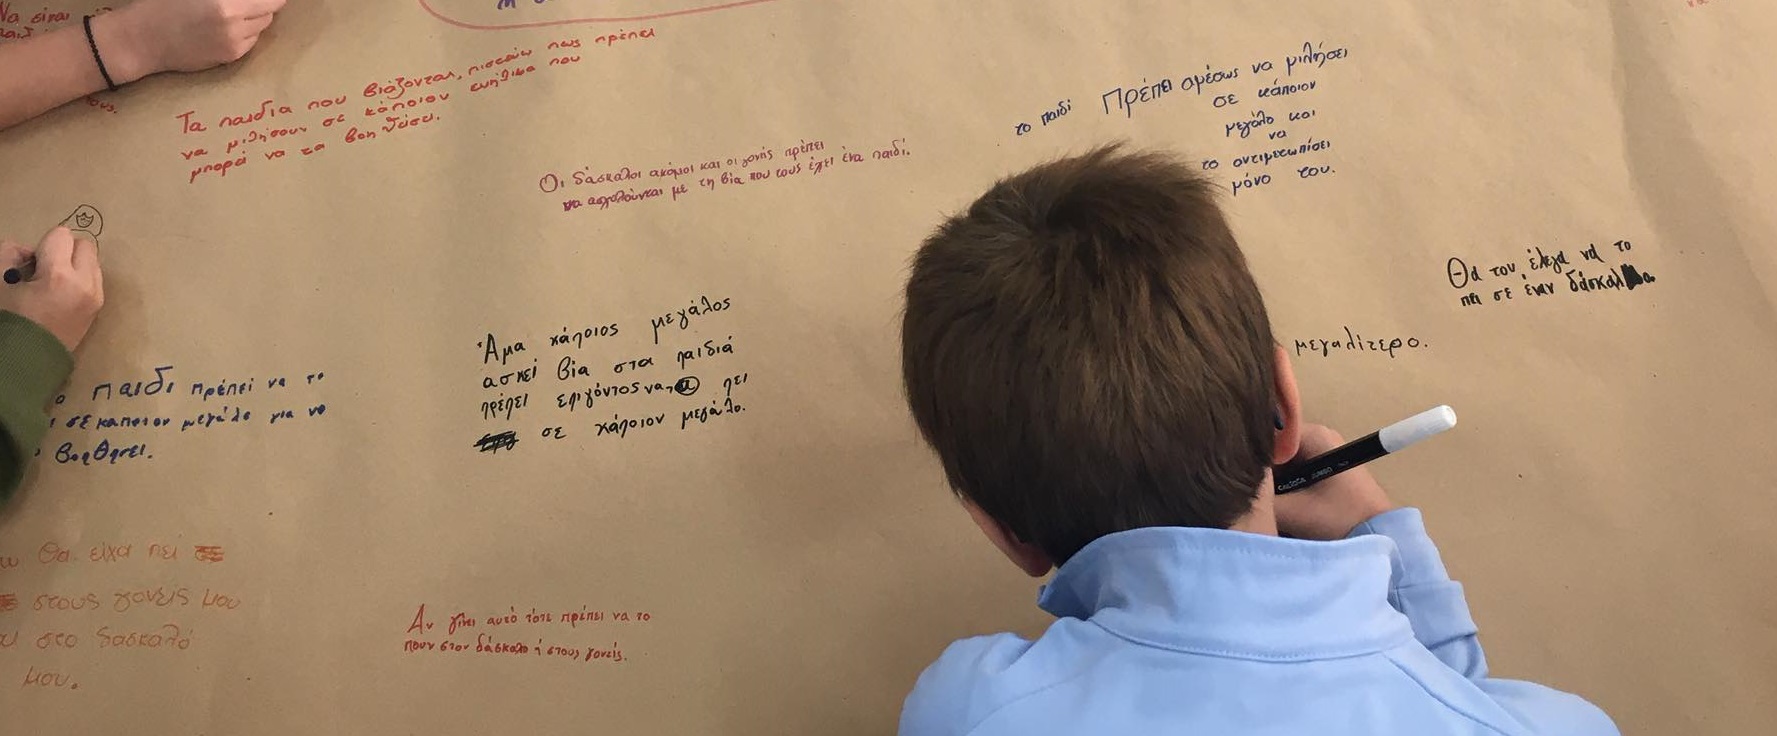 Να είναι
Τα παιδια που βιάζονται, πιστεύω πως πρέπει
να μιλήσουν σε κάποιον ενήλικα που
μπορεί να τα βοηθήσει.
Οι δάσκαλοι ακόμοι και οι γονής πρέπει
να ασχολούνται με τη βία που τους έχει ένα παιδί.
το παιδί Πρέπει αμέσως να μιλήσει
σε κάποιον
μεγάλο και
να
το αντιμετωπίσει
μόνο του.
Θα του έλεγα να το
πει σε έναν
μεγαλίτερο.
Άμα κάποιος μεγάλος
ασκεί βία στα παιδιά
πρέπει επιγόντος να πει
σε κάποιον μεγάλο.
παιδι πρέπει να το
σε καποιον μεγάλο για να
βοηθησει.
Θα είχα πει
στους γονείς μου
στο δασκαλό
μου.
Αν γίνει αυτό τότε πρέπει να το
πουν στον δάσκαλο ή στους γονείς.
CARIOCA JUMBO